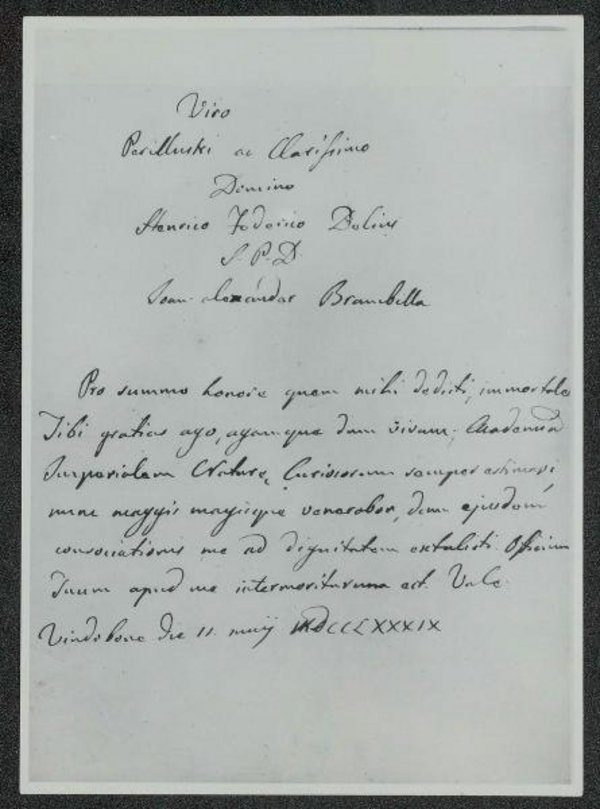 Viro
Perillustri ac Clarissimo
Domino
Henrico Federico Delius
S. P. D.
Joan. Alexander Brambilla
Pro summo honore quem mihi dedisti, immortale
Tibi gratias ago, agamque dum vivam; Academia
Imperialem Naturæ Curiosorum semper estimavi,
nunc maggis magisque venerabor, dum ejusdem
consociationis me ad dignitatem extulisti. Officium
Tuum apud me intermoriturum est. Vale.
Vindobone die 11. maij MDCCLXXXIX